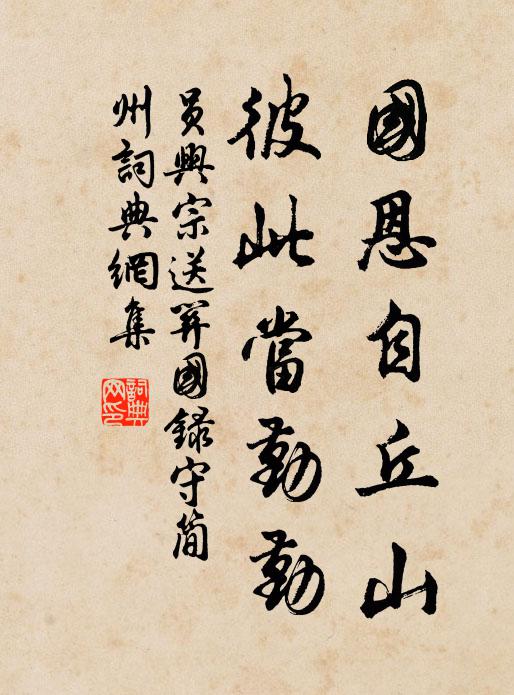 國恩自丘山
彼此當勤勤
員興宗送羿國錄守簡
州詞典網集
詞典網印